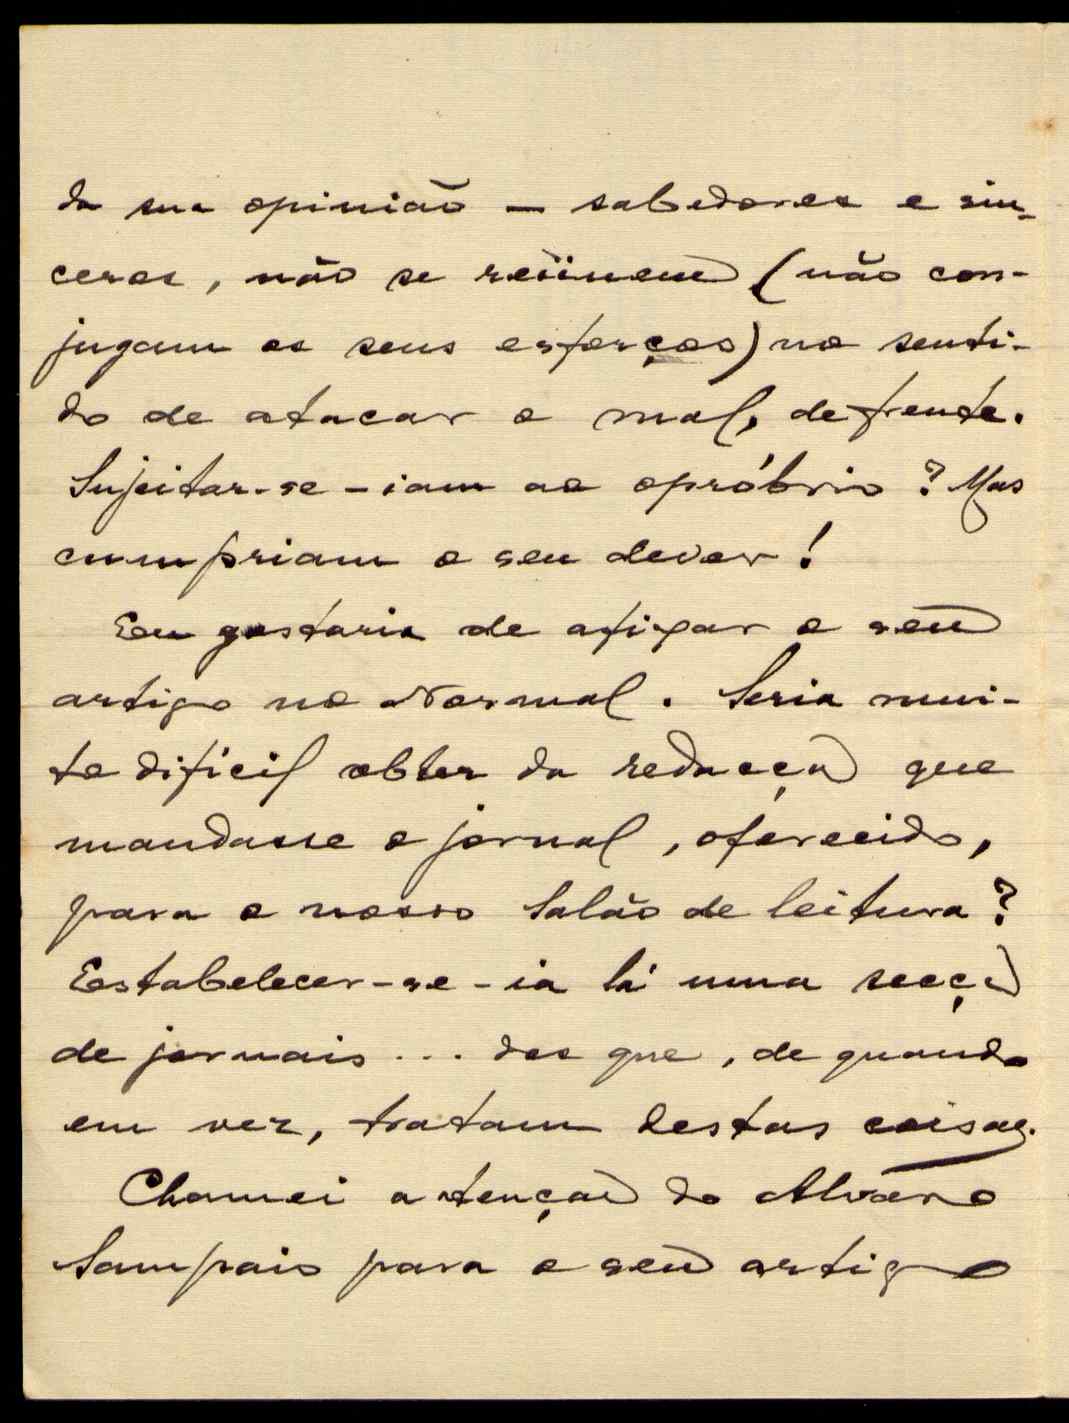 da sua opinião — sabedores e sin-
ceros, não se reünem (não con-
jugam os seus esforços) no senti-
do de atacar o mal, de frente.
Sujeitar-se-iam ao opróbrio? Mas
cumpriam o seu dever!
Eu gostaria de afixar o seu
artigo no Normal. Seria mui-
to difícil obter da redacção que
mandasse o jornal, oferecido,
para o nosso Salão de leitura?
Estabelecer-se-ia lá uma secção
de jornais... dos que, de quando
em vez, tratam destas coisas.
Chamei a atenção do Alvaro
Sampaio para o seu artigo